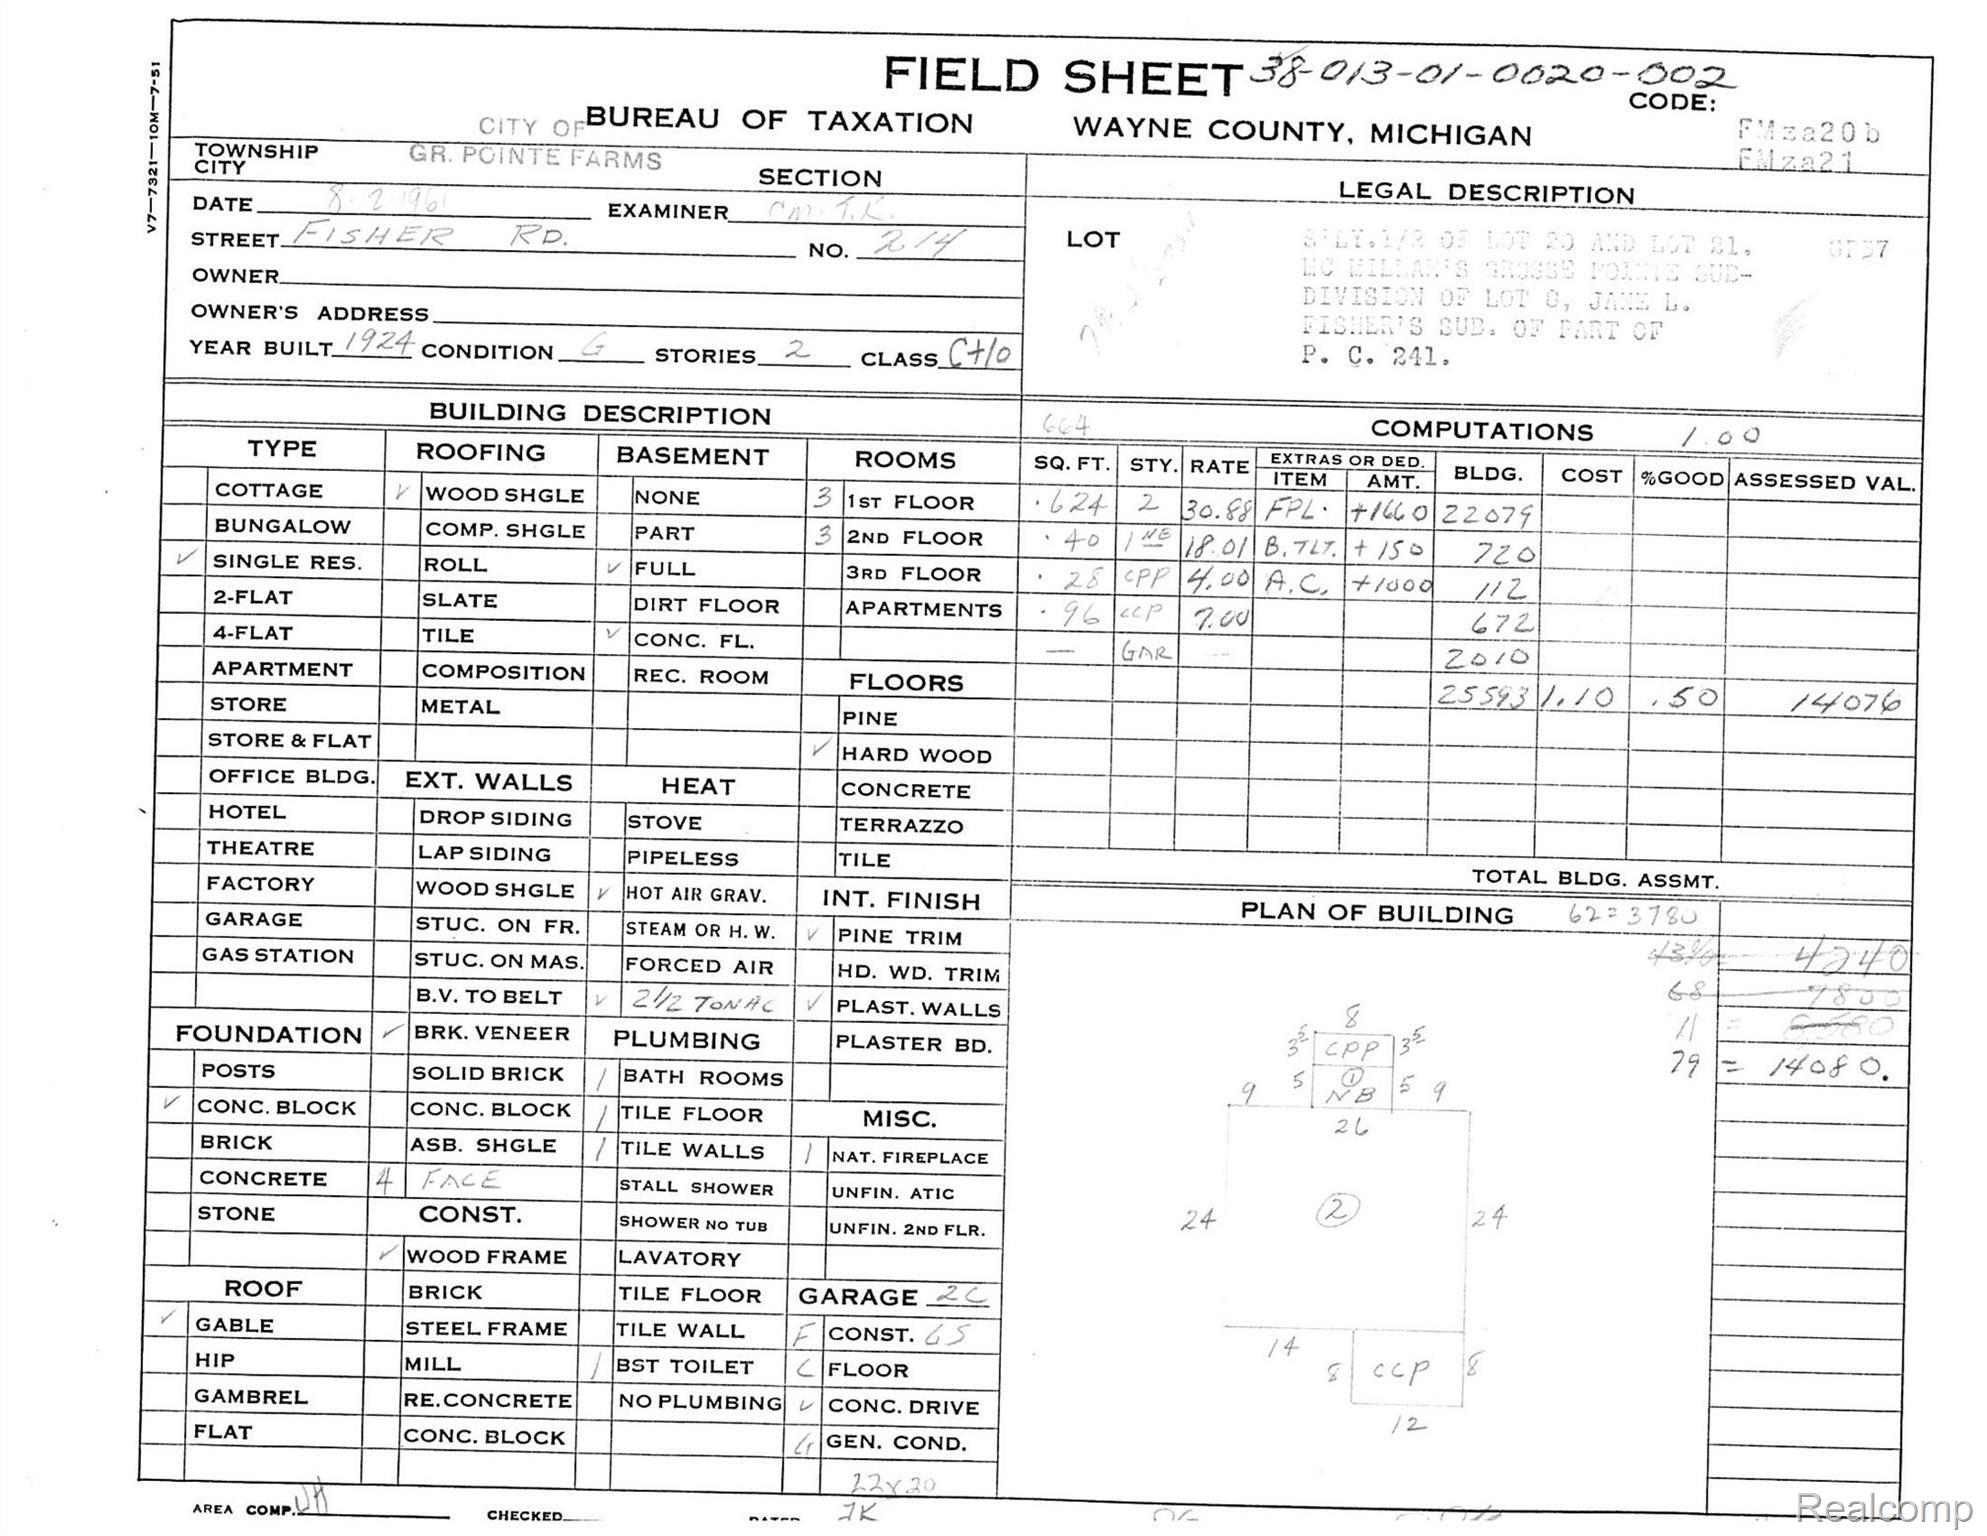 V7—7321—10M—7-51
FIELD SHEET 38-013-01-0020-002
CODE:
CITY OF BUREAU OF TAXATION WAYNE COUNTY, MICHIGAN
FMza20b
FMza21
TOWNSHIP GR. POINTE FARMS
CITY
SECTION
LEGAL DESCRIPTION
DATE 8-2-1961 EXAMINER
STREET FISHER RD. NO. 214
LOT
S'LY.1/2 OF LOT 20 AND LOT 21. GP37
MC MILLAN'S GROSSE POINTE SUB-
DIVISION OF LOT 8, JANE L.
FISHER'S SUB. OF PART OF
P. C. 241.
OWNER
OWNER'S ADDRESS
YEAR BUILT 1924 CONDITION G STORIES 2 CLASS C+10
BUILDING DESCRIPTION
664 COMPUTATIONS 1.00
SQ. FT. STY. RATE EXTRAS OR DED. BLDG. COST %GOOD ASSESSED VAL.
ITEM AMT.
624 2 30.88 FPL. +1660 22079
40 1 NE 18.01 B.TLT. +150 720
28 CPP 4.00 A.C. +1000 112
96 CCP 7.00 672
— GAR — 2010
25593 1.10 .50 14076
TOTAL BLDG. ASSMT.
TYPE
COTTAGE
BUNGALOW
✓ SINGLE RES.
2-FLAT
4-FLAT
APARTMENT
STORE
STORE & FLAT
OFFICE BLDG.
HOTEL
THEATRE
FACTORY
GARAGE
GAS STATION
FOUNDATION
POSTS
✓ CONC. BLOCK
BRICK
CONCRETE
STONE
ROOF
✓ GABLE
HIP
GAMBREL
FLAT
ROOFING
✓ WOOD SHGLE
COMP. SHGLE
ROLL
SLATE
TILE
COMPOSITION
METAL
EXT. WALLS
DROP SIDING
LAP SIDING
WOOD SHGLE
STUC. ON FR.
STUC. ON MAS.
B.V. TO BELT
✓ BRK. VENEER
SOLID BRICK
CONC. BLOCK
ASB. SHGLE
4 FACE
CONST.
✓ WOOD FRAME
BRICK
STEEL FRAME
MILL
RE.CONCRETE
CONC. BLOCK
BASEMENT
NONE
PART
✓ FULL
DIRT FLOOR
✓ CONC. FL.
REC. ROOM
HEAT
STOVE
PIPELESS
✓ HOT AIR GRAV.
STEAM OR H. W.
FORCED AIR
✓ 2 1/2 TON AC
PLUMBING
/ BATH ROOMS
/ TILE FLOOR
/ TILE WALLS
STALL SHOWER
SHOWER NO TUB
LAVATORY
TILE FLOOR
TILE WALL
/ BST TOILET
NO PLUMBING
ROOMS
3 1ST FLOOR
3 2ND FLOOR
3RD FLOOR
APARTMENTS
FLOORS
PINE
✓ HARD WOOD
CONCRETE
TERRAZZO
TILE
INT. FINISH
✓ PINE TRIM
HD. WD. TRIM
✓ PLAST. WALLS
PLASTER BD.
MISC.
/ NAT. FIREPLACE
UNFIN. ATIC
UNFIN. 2ND FLR.
GARAGE 2C
F CONST. GS
C FLOOR
✓ CONC. DRIVE
G GEN. COND.
22x20
PLAN OF BUILDING 62=3780
43% = 4240
68 7800
11 =
79 = 14080.
8
3⁵ CPP 3⁵
9 5 ① NB 5 9
26
24 ② 24
14
8 CCP 8
12
AREA COMP. CHECKED JK
Realcomp